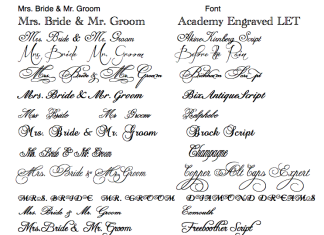 Mrs. Bride & Mr. Groom Font
Mrs. Bride & Mr. Groom Academy Engraved LET
Mrs. Bride & Mr. Groom AlexeiKunberg Script
Mrs. Bride Mr. Groom Before the Rain
Mrs. Bride & Mr. Groom
Mrs. Bride & Mr. Groom Bix Antique Script
Mrs Bride Mr Groom
Mrs. Bride & Mr. Groom Brock Script
Mrs. Bride & Mr. Groom Champagne
Mrs. Bride & Mr. Groom Copper Alt Caps Expert
MRS. BRIDE MR. GROOM DIAMOND DREAMS
Mrs. Bride & Mr. Groom Exmouth
Mrs. Bride & Mr. Groom Freebooter Script